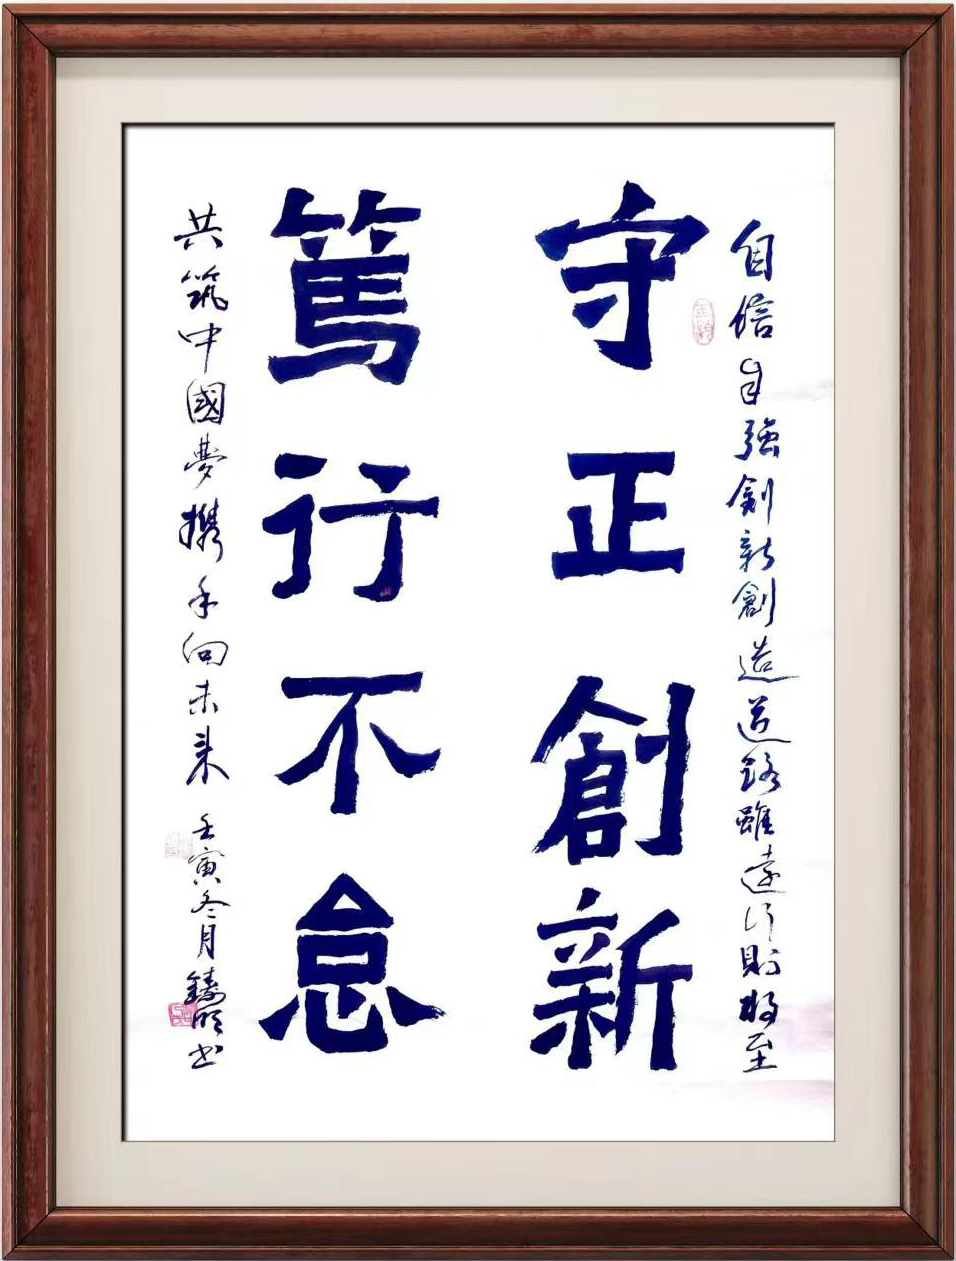 自信自強創新創造道路雖遠行則將至
守正創新
篤行不怠
共筑中國夢携手向未來
壬寅冬月鑄明书